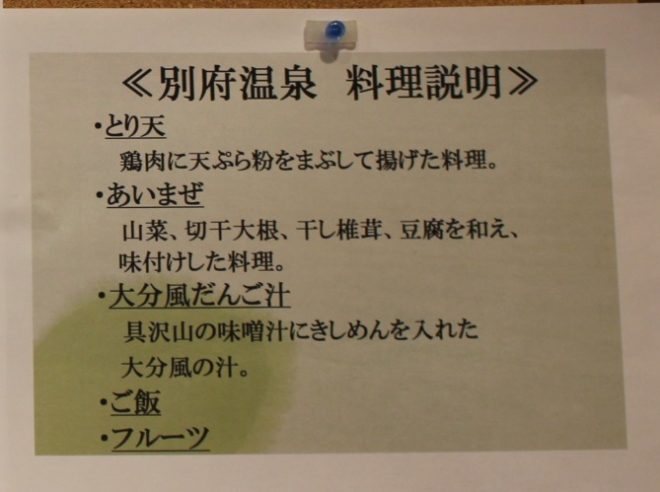 ≪別府温泉　料理説明≫
・とり天
鶏肉に天ぷら粉をまぶして揚げた料理。
・あいまぜ
山菜、切干大根、干し椎茸、豆腐を和え、
味付けした料理。
・大分風だんご汁
具沢山の味噌汁にきしめんを入れた
大分風の汁。
・ご飯
・フルーツ